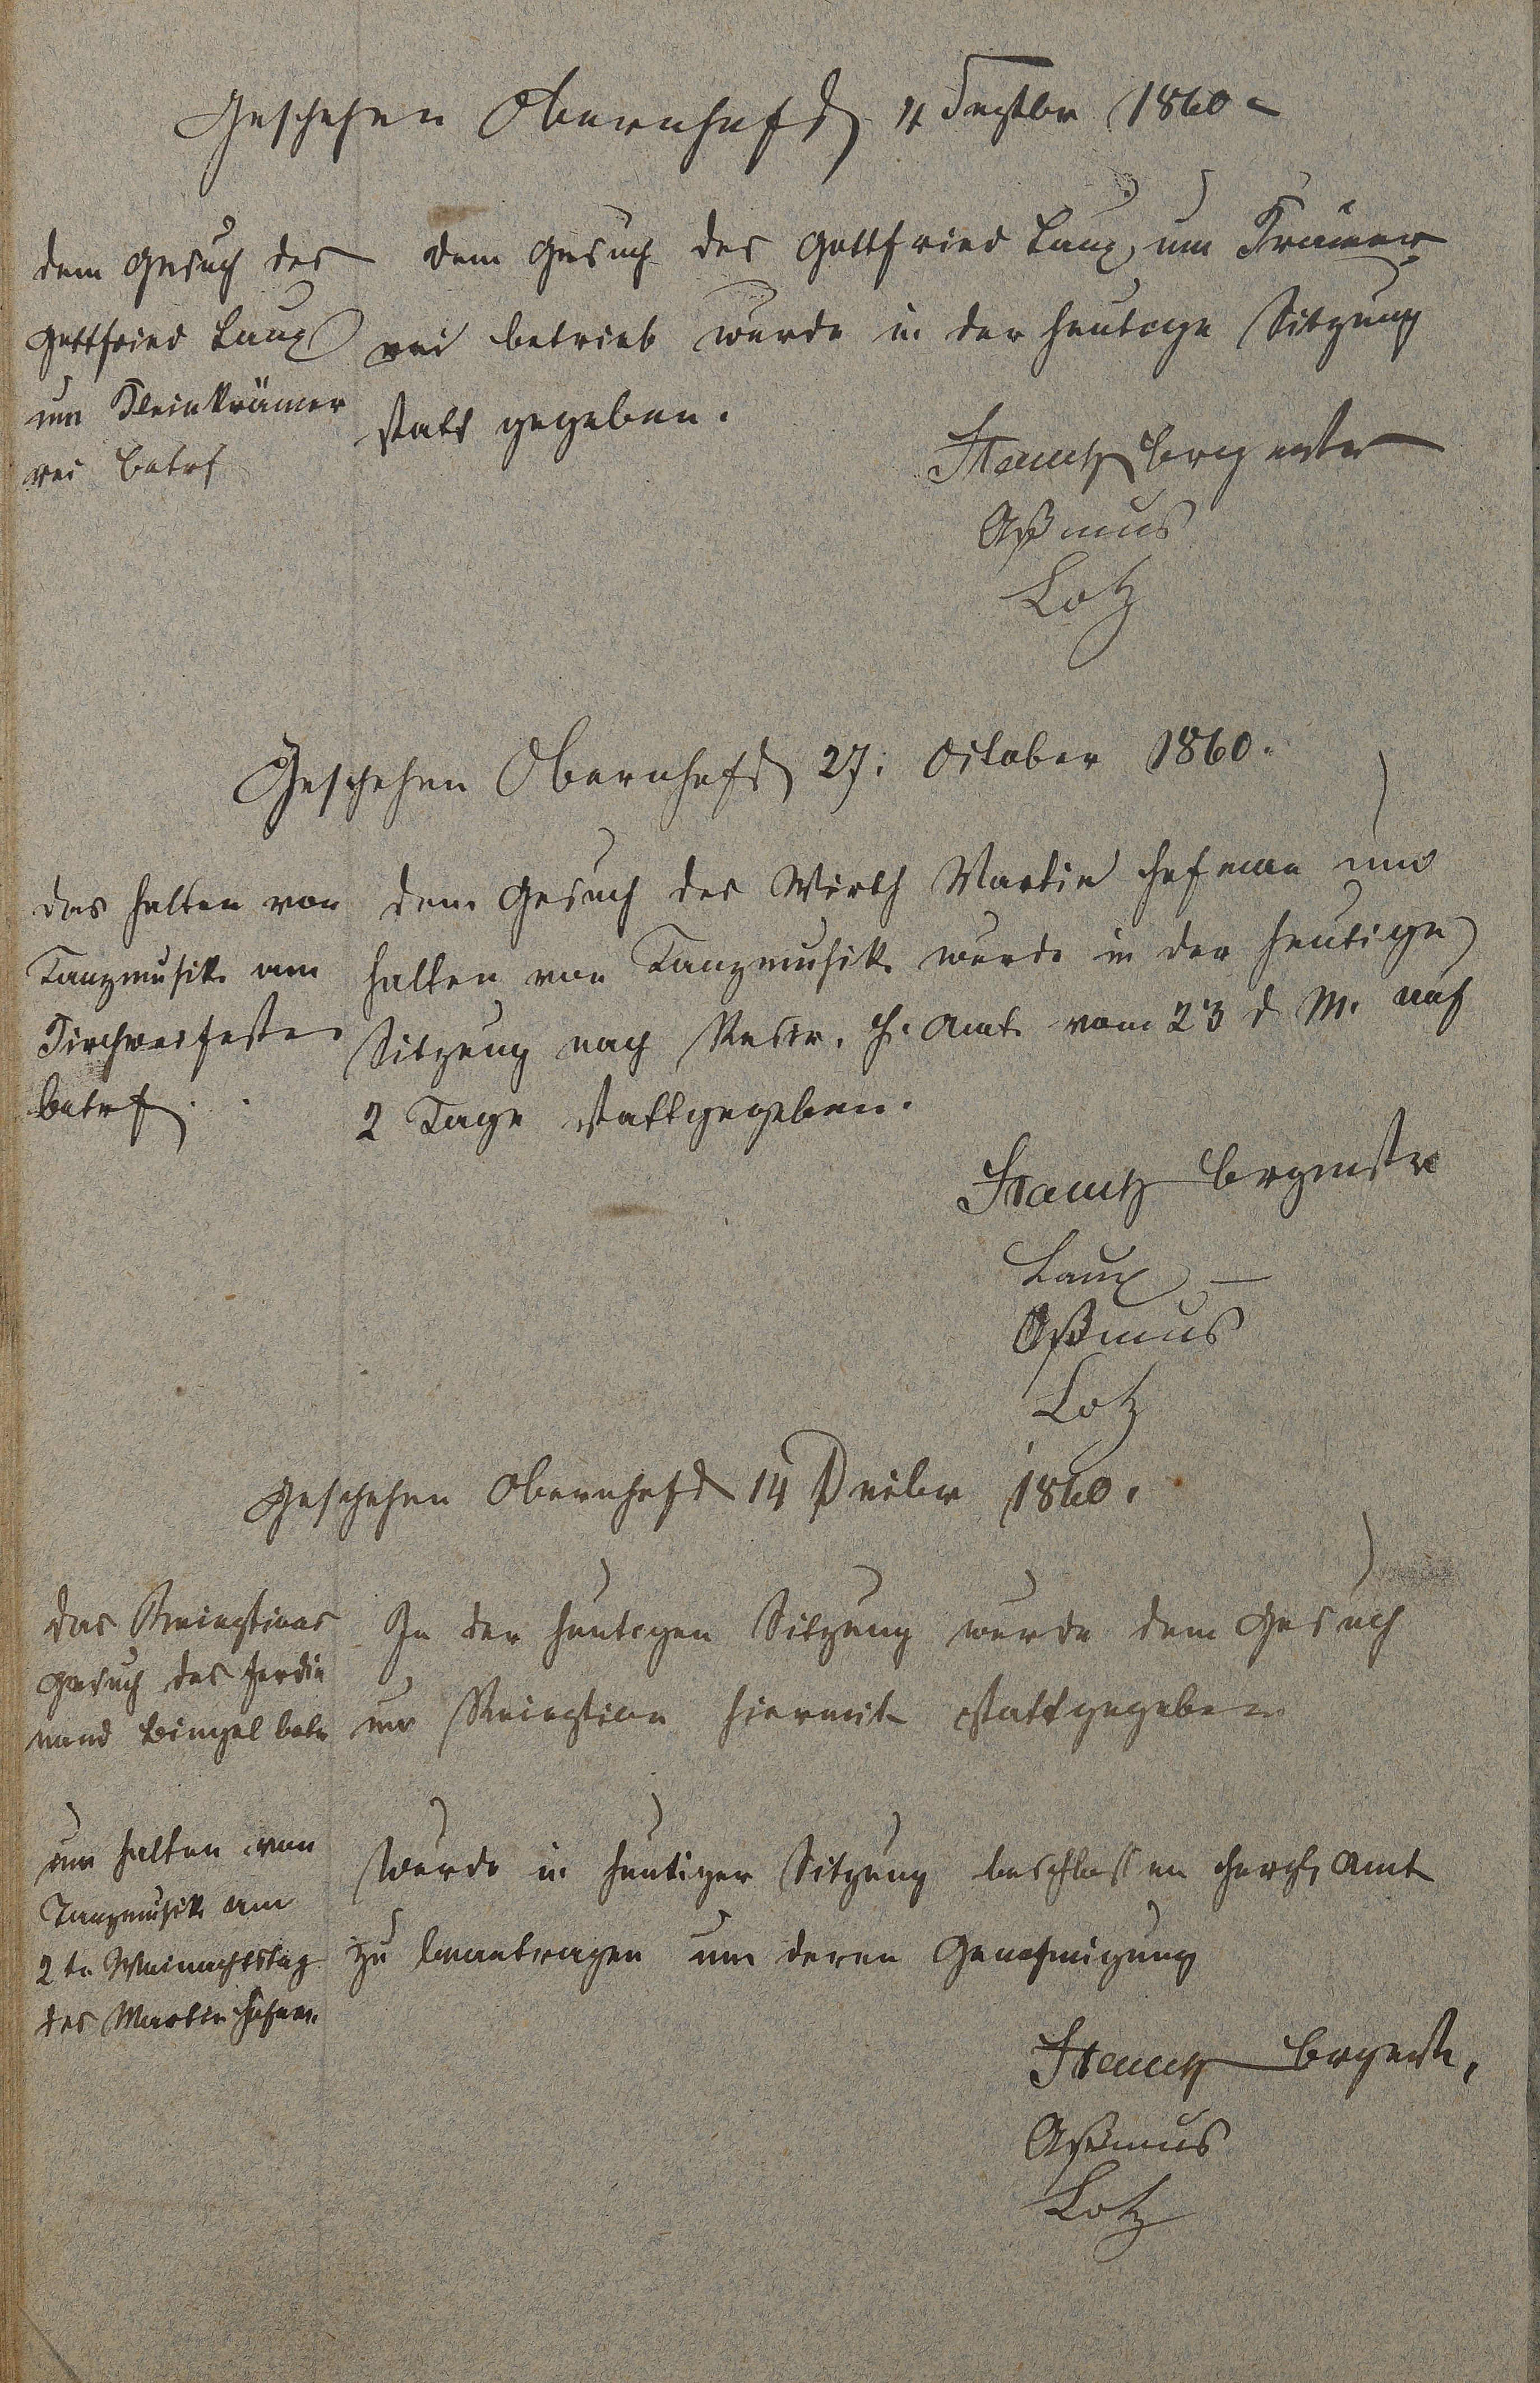 Geschehen Obernhof d 4 Septbr 1860
dem Gesuch des
Gottfried Laux
um Kleinkrämer
rei betrf
dem Gesuch des Gottfried Laux, um Krämer
rei betrieb wurde in der heutige Sitzung
statt gegeben.
Brgmstr
Aßmus
Lotz
Geschehen Obernhof d 27. October 1860.
das halten von
Tanzmusik am
Kirchweifeste
betrf.
dem Gesuch des Wirth Martin Hofman um
halten von Tanzmusik wurde in der heutigen
Sitzung nach Rescr. H. Amt vom 23 d M. auf
2 Tage stattgegeben.
Brgmstr
Laux
Aßmus
Lotz
Geschehen Obernhof d 14 1860.
das Receptions
gesuch des Ferdi
nand Bingel betr
In der heutigen Sitzung wurde dem Gesuch
um Reception hiermit stattgegeben
um halten von
Tanzmusik am
2 tn Weinachtstag
des Martin Hofm.
Wurde in heutiger Sitzung beschlossen Herzl. Amt
zu beantragen um deren Genehmigung
Brgmstr,
Aßmus
Lotz